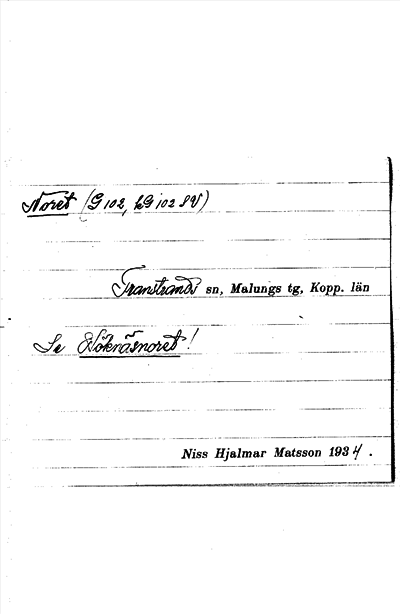 Noret (G 102, kG 102 SV)
Transtrands sn, Malungs tg, Kopp. län
Se Höknäsnoret!
Niss Hjalmar Matsson 1934.